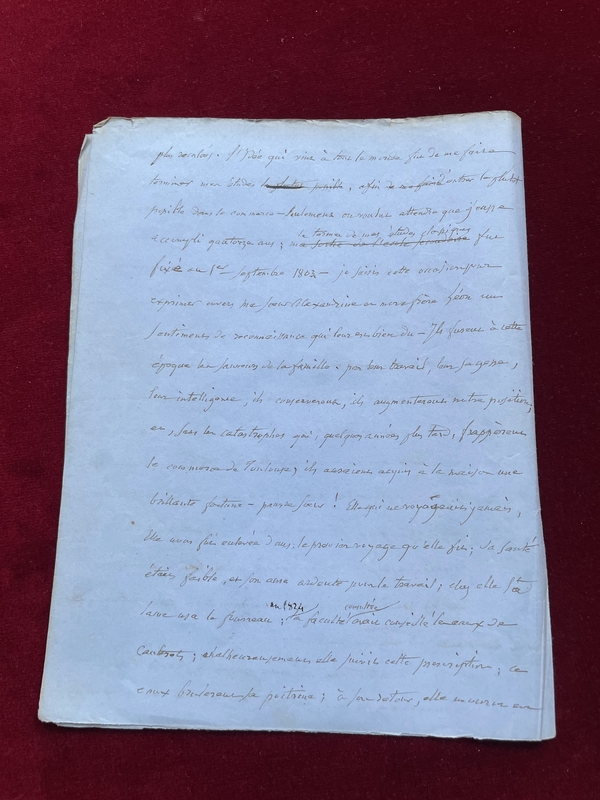 plus reculées. L'idée qui vint à toute la maison fut de me faire
terminer mes études le plutôt possible, afin de me faire entrer le plutôt
possible dans le commerce – seulement on voulut attendre que j'eusse
le terme de mes études classiques
accompli quatorze ans ; ma sortie de l'école secondaire fut
fixé au 1er septembre 1803 – je saisis cette occasion pour
exprimer envers ma sœur Alexandrine et notre frère Léon les
sentimens de reconnaissance qui leur est bien du – Ils furent à cette
époque les sauveurs de la famille. par leur travail, leur sagesse,
leur intelligence, ils conservèrent, ils augmentèrent notre position,
et, sans les catastrophes qui, quelques années plus tard, frappèrent
le commerce de Toulouse, ils auraient acquis à la maison une
brillante fortune – pauvre sœur ! Elle qui ne voyageait jamais,
Elle nous fut enlevée dans le premier voyage qu'elle fit ; sa santé
était faible, et son âme ardente pour le travail ; chez elle la
en 1824 consultée
lame usa le fourreau ; la faculté avait conseillé les eaux de
Cauterets ; malheureusement elle suivit cette prescription ; ces
eaux brulèrent sa poitrine ; à son retour, elle mourut en